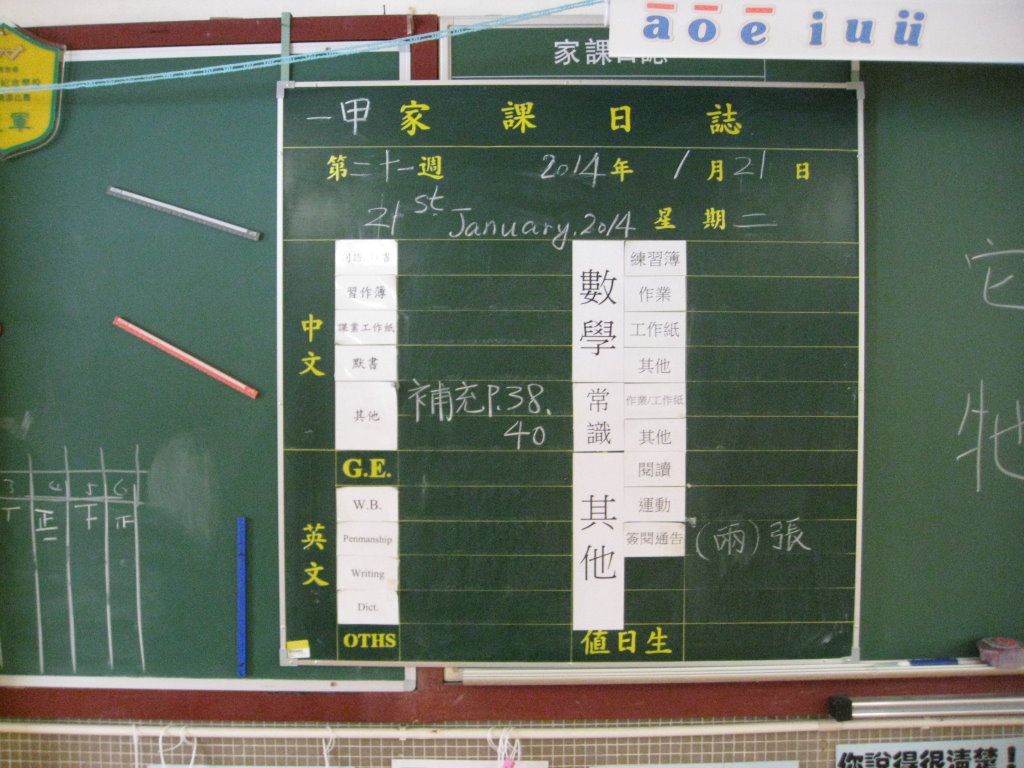 ā ō ē i u ü
家課日誌
一甲 家課日誌
第二十一週 2014年 1月21日
21st January, 2014 星期二
中文
習作簿
課業工作紙
默書
其他 補充P.38, 40
英文
G.E.
W.B.
Penmanship
Writing
Dict.
OTHS
數學
練習簿
作業
工作紙
其他
常識
作業/工作紙
其他
其他
閱讀
運動
簽閱通告 (兩)張
值日生
3 4 5 6
T 正 下 正
它
牠
你說得很清楚！